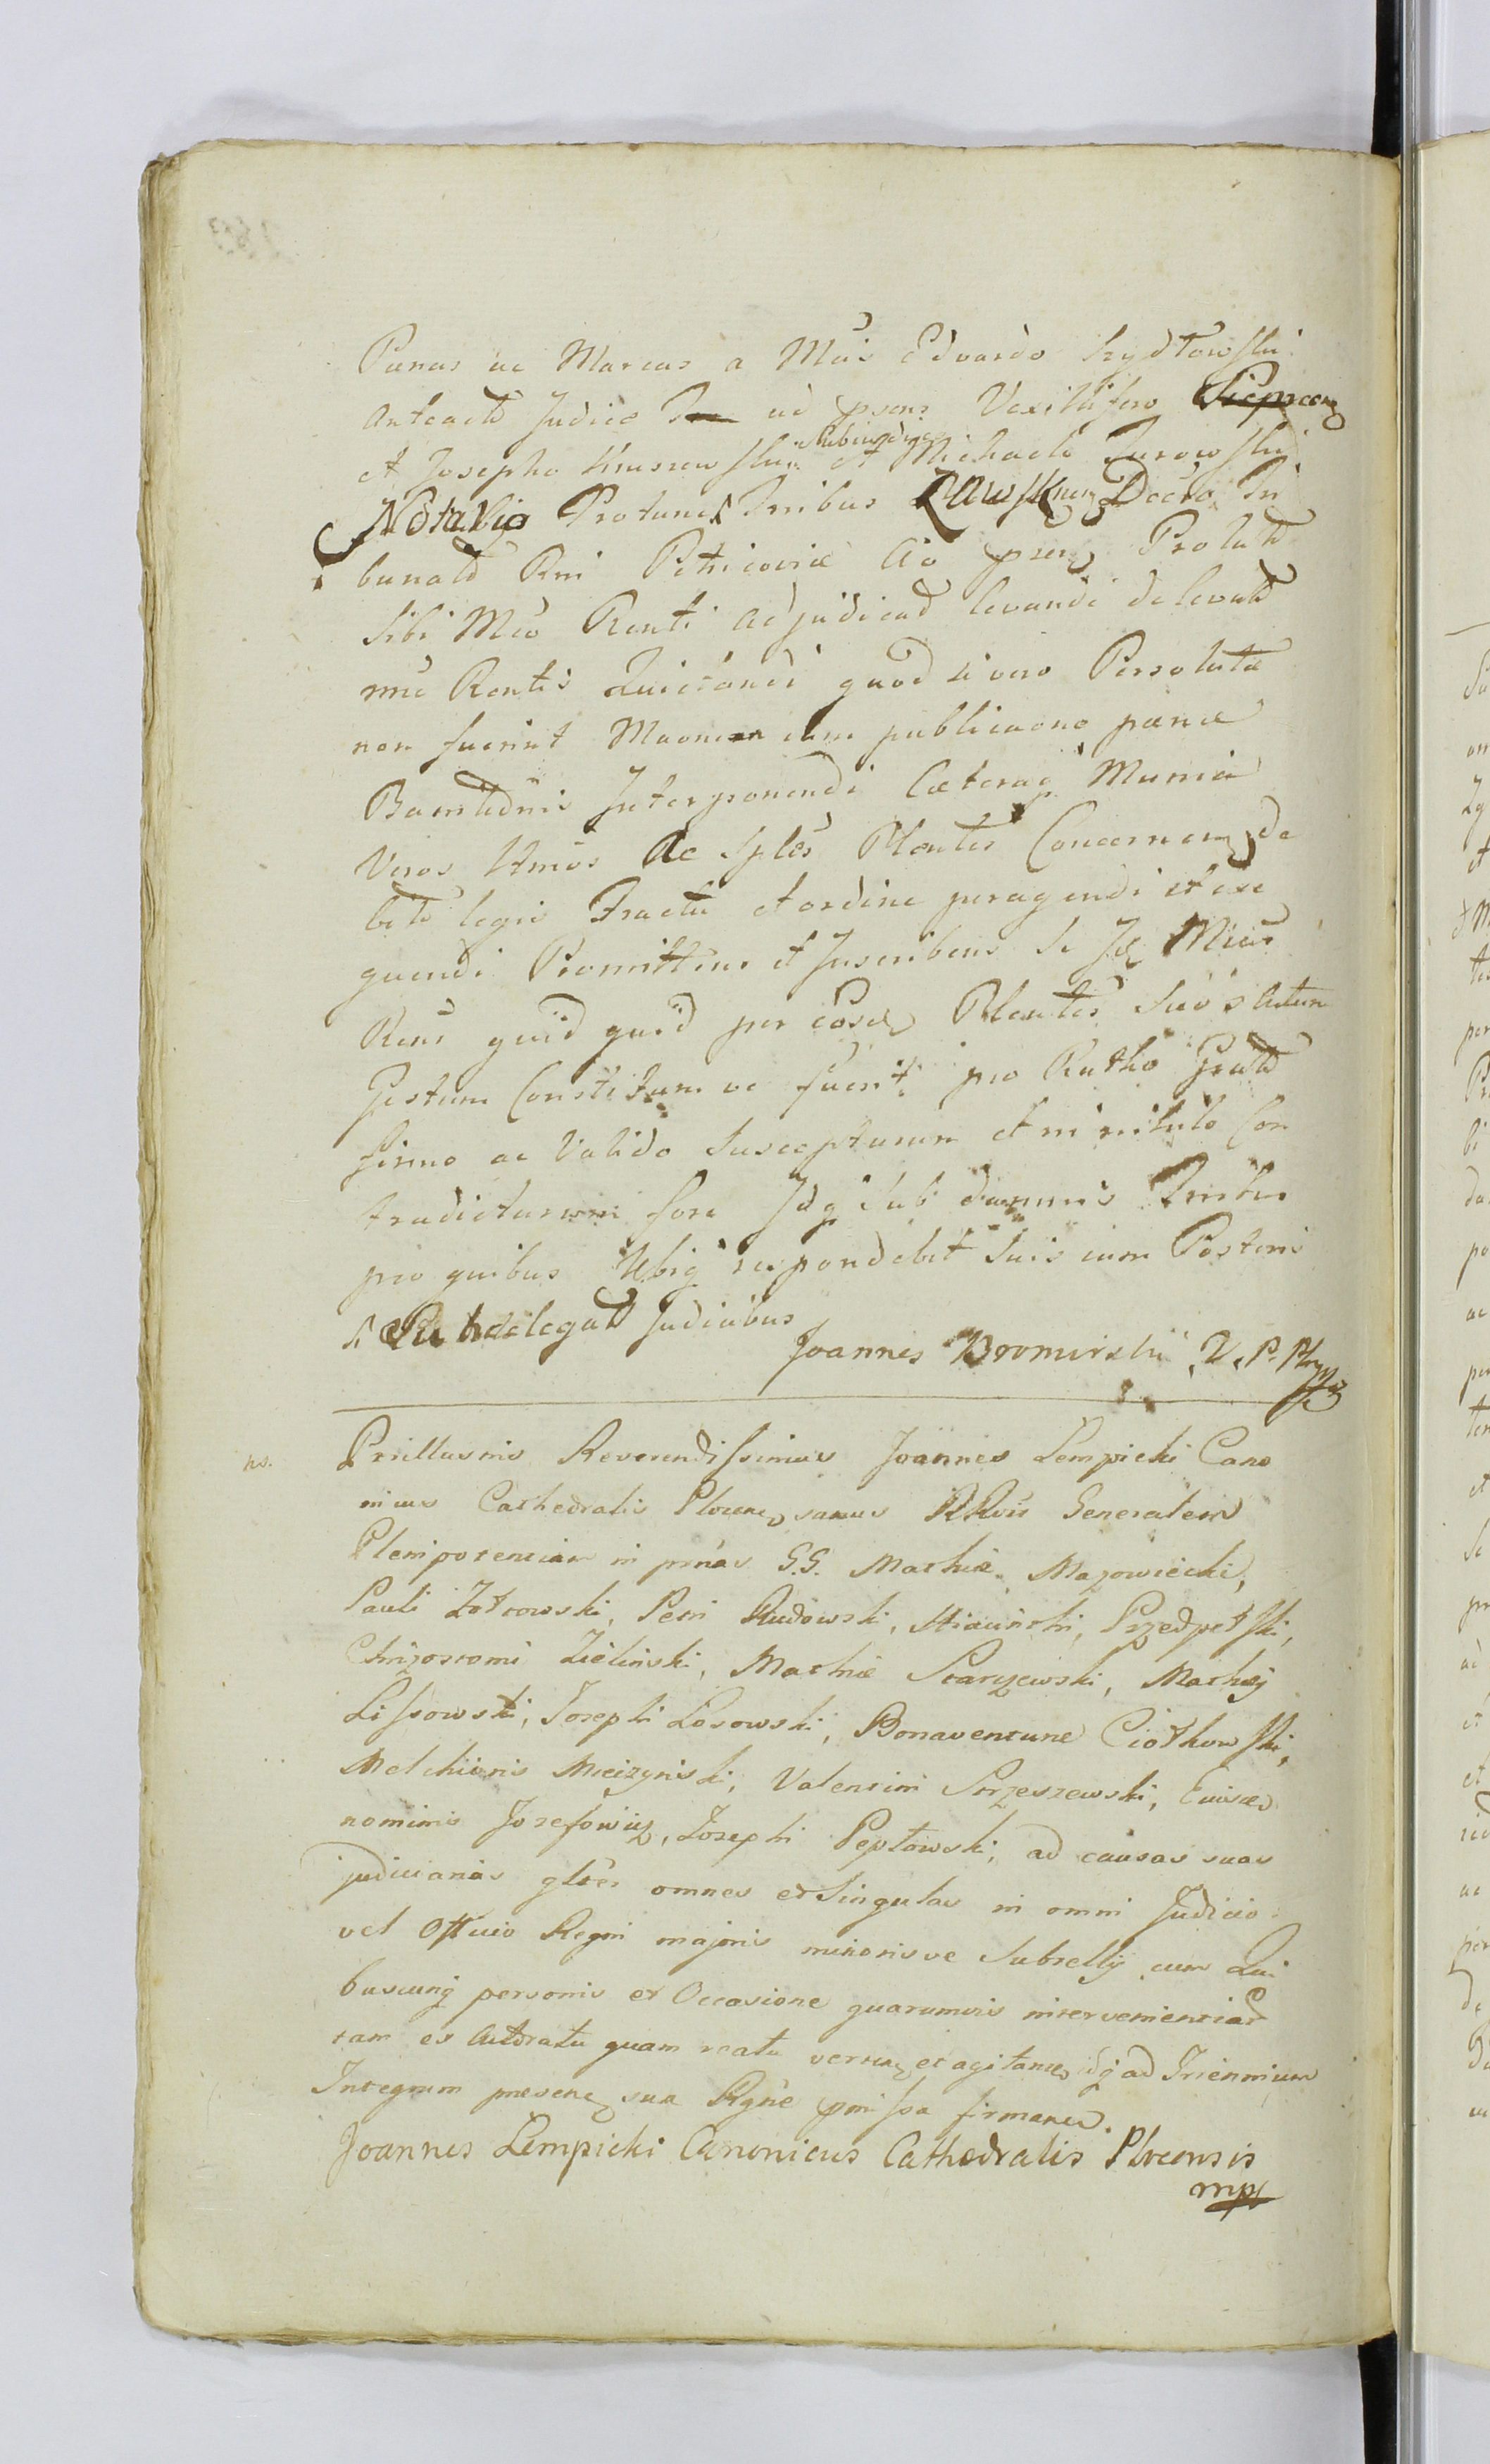 Pænas ac Marcas a Mcis Edvardo Szydłowski
Anteactō Judice ad psens Vexillifero Siepreceñ
Subjudice
et Josepho Kruszewski et Michaele Zurowski
Notario Protunc Tribus Zawskrneñ Decro Tri
bunalō Rni Petricoviæ Ao præs Prolatō
Sibi Mco Rcnti adjudicatō levandi de levatis
nne Rcntis Quietandi quod si vero Persolutæ
non fuerint cum publicaone pænæ
Bannitōnis Interponendi Cæteraq Munia
Veros Ltmos Ac Sples Plentes Concernenō de
bitō legis Tractu et ordine peragendi et exe
quendi Promittens et Inscribens Se Idē Mcus
Rcns quid quid per eosdē Plentes Suos Actum
Gestum Constitutum ve fuerit pro Ratho Gratō
firmo ac Valido Suscepturum et in nihilo Con
tradicturum fore Idq Sub damnis Trribus
pro quibus Ubiq respondebit Suis cum Posteris
Subdelegatō Judicibus
Joannes Bromirski V. P. Płgg
ns.
Perillustris Reverendissimus Joannes Łempicki Cano
nicus Cathedralis Plocenō sanus RRvit Generalem
Plenipotenciam in prnas G.G. Mathiæ Mazowiecki,
Pauli Zotrowski, Petri Rudowski, Przedpełski,
Chrizostomi Zielinski, Mathiæ Starczewski, Mathæj
Lissowski, Josephi Losowski, Bonaventuræ Ciołkowski,
Melchioris Mieizynski, Valentini Strzeszewski,
nominis Josefowicz, Josephi Pepłowski, ad causas suas
judiciarias glter omnes et Singulas in omni Judicio
vel Officio Regni majoris minorisve Subsellij cum Qui
buscunq personis et Occasione quarumvis intervenienciarō
tam ex Actoratu quam reatu verteñ et agitaneō idq ad Triennium
Integrum præseneō sua Rgne pmissa firmaneō.
Joannes Łempicki Canonicus Cathedralis Płocensis
mpp